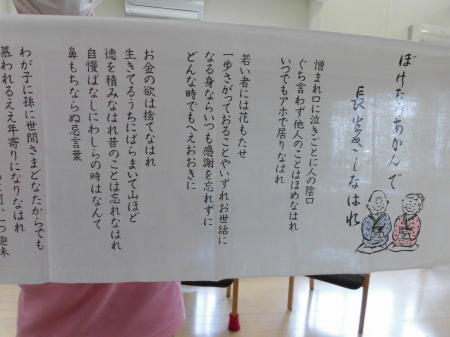 ぼけたらあかんで
長生きしなはれ
憎まれ口に泣きごとに人の陰口
ぐち言わず他人のことはほめなはれ
いつでもアホで居りなはれ
若い者には花もたせ
一歩さがっておることやいずれお世話に
なる身ならいつも感謝を忘れずに
どんな時でもへえおおきに
お金の欲は捨てなはれ
生きてるうちにばらまいて山ほど
徳を積みなはれ昔のことは忘れなはれ
自慢ばなしにわしらの時はなんて
鼻もちならぬ忌言葉
わが子に孫に世間さまどなたからでも
慕われるええ年寄りになりなはれ